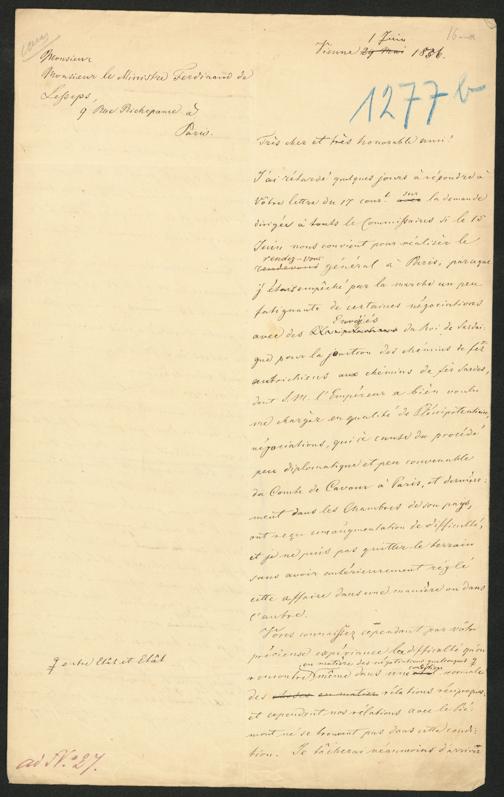 16
Vienne 29 Mai 1 Juin 1856.
Monsieur
Monsieur le Ministre Ferdinand de
Lesseps,
9, Rue Richepance à
Paris.
1277 b
Très cher et très honorable ami!
J'ai rétardé quelques jours à répondre à
Vôtre lettre du 17 court sur la demande
dirigée à touts le Commissaires si le 15
Juin nous convient pour réaliser le
rendez-vous
rendevous général à Paris, parceque
j'étais empêché par la marche un peu
fatiguante de certaines négociations
Envoyés
avec des du Roi de Sardai-
gne pour la jonction des chémins de fér
autrichiens aux chémins de fér Sardes,
dont S. M. l'Empéreur a bien voulu
me charger en qualité de Plénipotentiaire,
négociations, qui à cause du procédé
peu diplomatique et peu convenable
du Comte de Cavour à Paris, et dernière-
ment dans les Chambres de son pays,
ont reçu une augmentation de difficulté,
et je ne puis pas quitter le terrain
sans avoir antérieurement réglé
cette affaire dans une manière ou dans
l'autre.
Vous connaissez cependant par vôtre
précieuse expérience la difficulté qu'on
en matière des négotiations quelconques
rencontre même dans une condition normale
des choses en matière rélations réciproques
et cependant nos rélations avec le Pié-
mont ne se trouvent pas dans cette condi-
tion. Je tâcherai néanmoins d'arriver
entre Etât et Etât
ad No. 27.